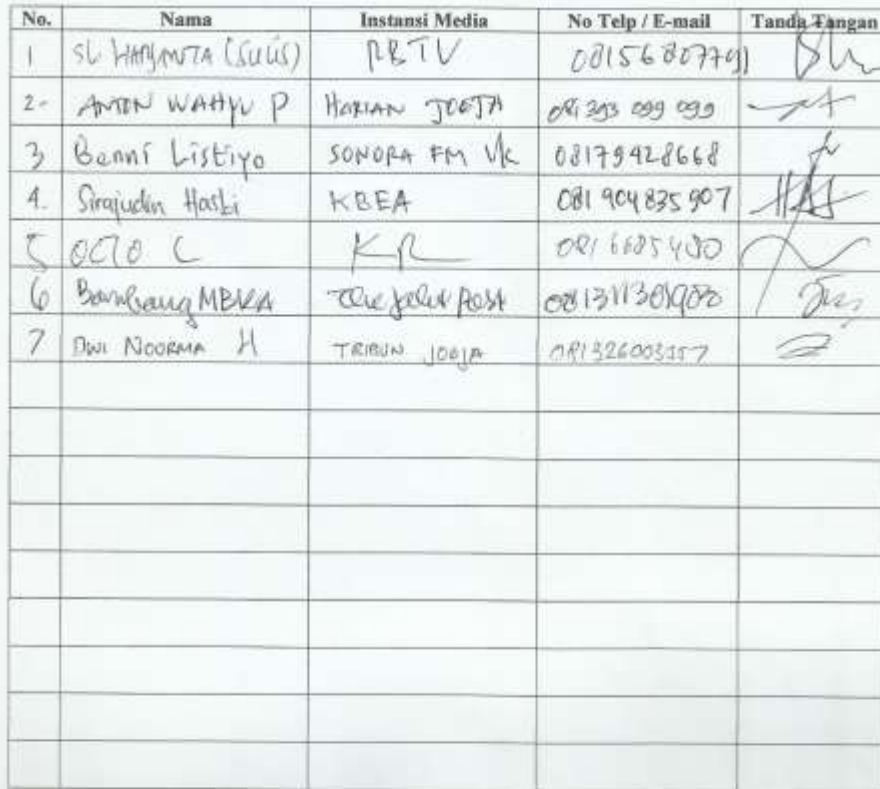 No. Nama Instansi Media No Telp / E-mail Tanda Tangan
1 SL HARYANTA (SULIS) RBTV 08156807791
2- ANTON WAHYU P HARIAN JOGJA 081 393 099 099
3 Benni Listiyo SONORA FM YK 08179428668
4. Sirajudin Hasbi KBEA 081 904 835 907
5 OCTO C KR
6 Bambang MBKA The Jakarta Post
7 DWI NOORMA H TRIBUN JOGJA